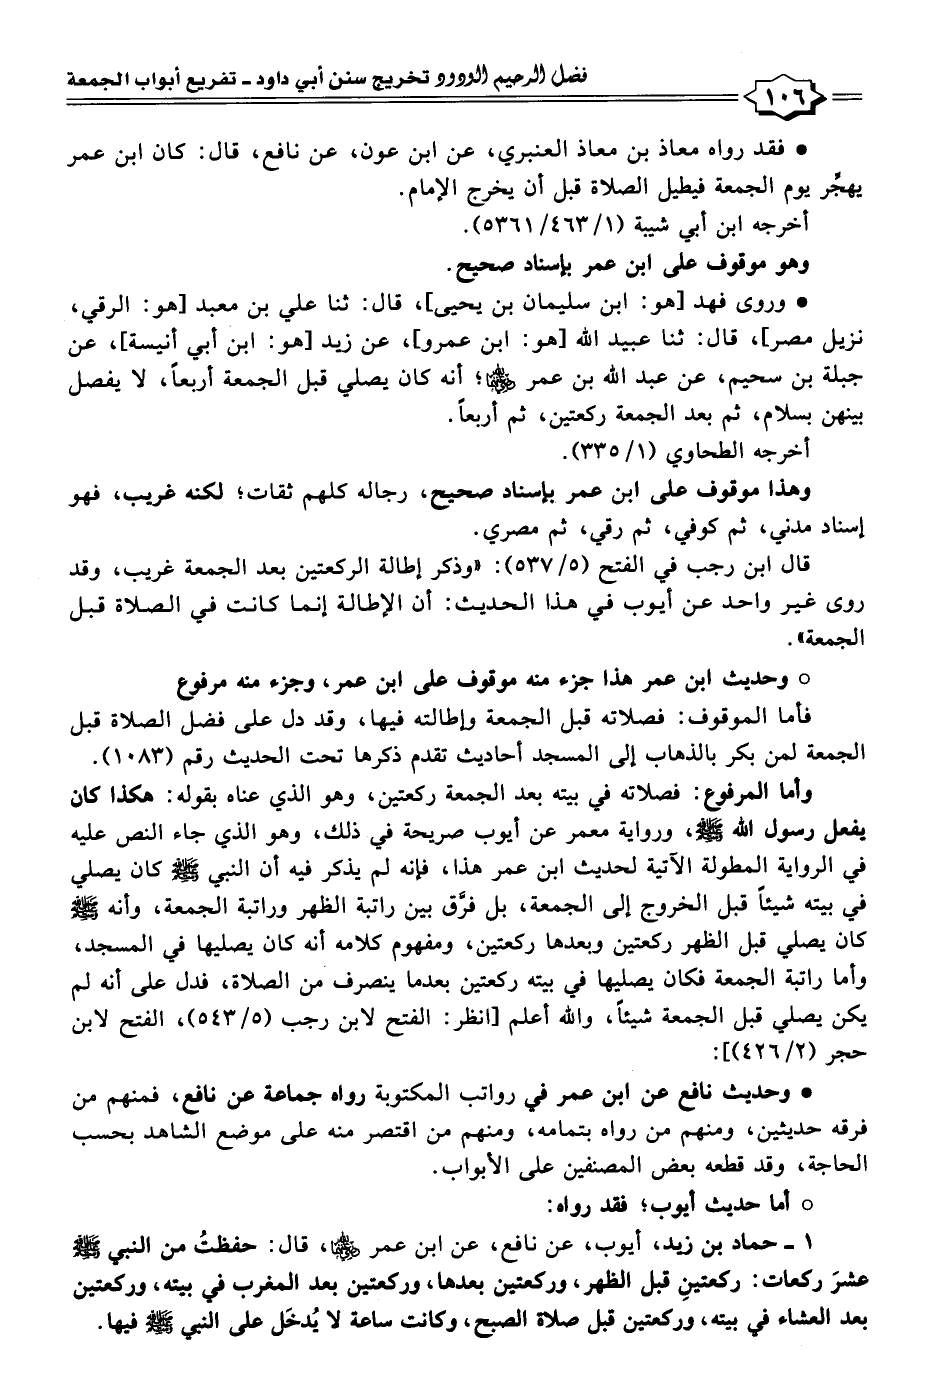 فضل الرحيم الودود تخريج سنن أبي داود - تفريع أبواب الجمعة
١٠٦
• فقد رواه معاذ بن معاذ العنبري، عن ابن عون، عن نافع، قال: كان ابن عمر
يهجِّر يوم الجمعة فيطيل الصلاة قبل أن يخرج الإمام.
أخرجه ابن أبي شيبة (١/ ٤٦٣/ ٥٣٦١).
وهو موقوف على ابن عمر بإسناد صحيح.
• وروى فهد [هو: ابن سليمان بن يحيى]، قال: ثنا علي بن معبد [هو: الرقي،
نزيل مصر]، قال: ثنا عبيد الله [هو: ابن عمرو]، عن زيد [هو: ابن أبي أنيسة]، عن
جبلة بن سحيم، عن عبد الله بن عمر رضي الله عنهما؛ أنه كان يصلي قبل الجمعة أربعاً، لا يفصل
بينهن بسلام، ثم بعد الجمعة ركعتين، ثم أربعاً.
أخرجه الطحاوي (١/ ٣٣٥).
وهذا موقوف على ابن عمر بإسناد صحيح، رجاله كلهم ثقات؛ لكنه غريب، فهو
إسناد مدني، ثم كوفي، ثم رقي، ثم مصري.
قال ابن رجب في الفتح (٥/ ٥٣٧): «وذكر إطالة الركعتين بعد الجمعة غريب، وقد
روى غير واحد عن أيوب في هذا الحديث: أن الإطالة إنما كانت في الصلاة قبل
الجمعة».
○ وحديث ابن عمر هذا جزء منه موقوف على ابن عمر، وجزء منه مرفوع
فأما الموقوف: فصلاته قبل الجمعة وإطالته فيها، وقد دل على فضل الصلاة قبل
الجمعة لمن بكر بالذهاب إلى المسجد أحاديث تقدم ذكرها تحت الحديث رقم (١٠٨٣).
وأما المرفوع: فصلاته في بيته بعد الجمعة ركعتين، وهو الذي عناه بقوله: هكذا كان
يفعل رسول الله ﷺ، ورواية معمر عن أيوب صريحة في ذلك، وهو الذي جاء النص عليه
في الرواية المطولة الآتية لحديث ابن عمر هذا، فإنه لم يذكر فيه أن النبي ﷺ كان يصلي
في بيته شيئاً قبل الخروج إلى الجمعة، بل فرَّق بين راتبة الظهر وراتبة الجمعة، وأنه ﷺ
كان يصلي قبل الظهر ركعتين وبعدها ركعتين، ومفهوم كلامه أنه كان يصليها في المسجد،
وأما راتبة الجمعة فكان يصليها في بيته ركعتين بعدما ينصرف من الصلاة، فدل على أنه لم
يكن يصلي قبل الجمعة شيئاً، والله أعلم [انظر: الفتح لابن رجب (٥/ ٥٤٣)، الفتح لابن
حجر (٢/ ٤٢٦)]:
• وحديث نافع عن ابن عمر في رواتب المكتوبة رواه جماعة عن نافع، فمنهم من
فرقه حديثين، ومنهم من رواه بتمامه، ومنهم من اقتصر منه على موضع الشاهد بحسب
الحاجة، وقد قطعه بعض المصنفين على الأبواب.
○ أما حديث أيوب؛ فقد رواه:
١ - حماد بن زيد، أيوب، عن نافع، عن ابن عمر رضي الله عنهما، قال: حفظتُ من النبي ﷺ
عشرَ ركعات: ركعتينِ قبل الظهر، وركعتين بعدها، وركعتين بعد المغرب في بيته، وركعتين
بعد العشاء في بيته، وركعتين قبل صلاة الصبح، وكانت ساعة لا يُدخَل على النبي ﷺ فيها.